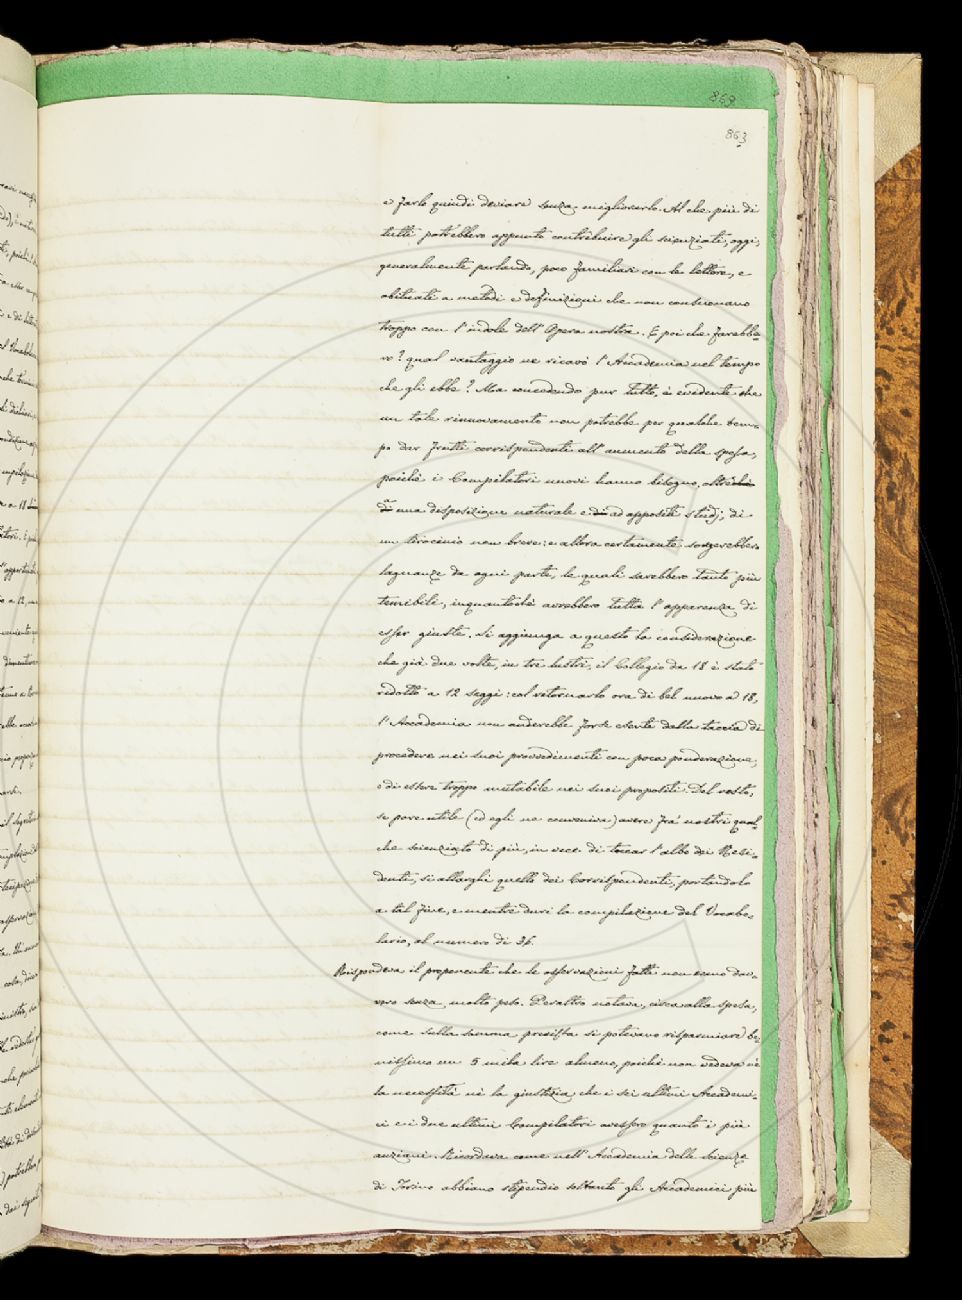 863
863
e farlo quindi deviare senza migliorarlo. Al che più di
tutti potrebbero appunto contribuire gli scienziati, oggi,
generalmente parlando, poco familiari con le lettere, e
abituati a metodi e definizioni che non consuonano
troppo con l'indole dell'Opera nostra. E poi che farebbe=
ro? qual vantaggio ne ricavò l'Accademia nel tempo
che gli ebbe? Ma concedendo pur tutto, è evidente che
un tale rinnovamento non potrebbe per qualche tem=
po dar frutti corrispondenti all'aumento della spesa,
poichè i Compilatori nuovi hanno bisogno, oltrechè
a di una disposizione naturale e di ad appositi studj, di
un tirocinio non breve: e allora certamente sorgerebbero
lagnanze da ogni parte, le quali sarebbero tanto più
temibili, inquantochè avrebbero tutta l'apparenza di
esser giuste. Si aggiunga a questo la considerazione
che già due volte, in tre lustri, il Collegio da 18 è stato
ridotto a 12 seggi: col ritornarlo ora di bel nuovo a 18,
l'Accademia non anderebbe forse esente dalla taccia di
procedere nei suoi provvedimenti con poca ponderazione,
e di essere troppo mutabile nei suoi propositi. Del resto,
se pare utile (ed egli ne conveniva) avere fra' nostri qual=
che scienziato di più, in vece di toccar l'albo dei Resi=
denti, si allarghi quello dei Corrispondenti, portandolo
a tal fine, e mentre duri la compilazione del Vocabo=
lario, al numero di 36.
Rispondeva il proponente che le osservazioni fatte non erano dav=
vero senza molto peso. Peraltro notava, circa alla spesa,
come sulla somma prevista si potevano risparmiare be=
nissimo un 5 mila lire almeno, poichè non vedeva nè
la necessità nè la giustizia che i sei ultimi Accademi=
ci e i due ultimi Compilatori avessero quanto i più
anziani. Ricordava come nell'Accademia delle scienze
di Torino abbiano stipendio soltanto gli Accademici più